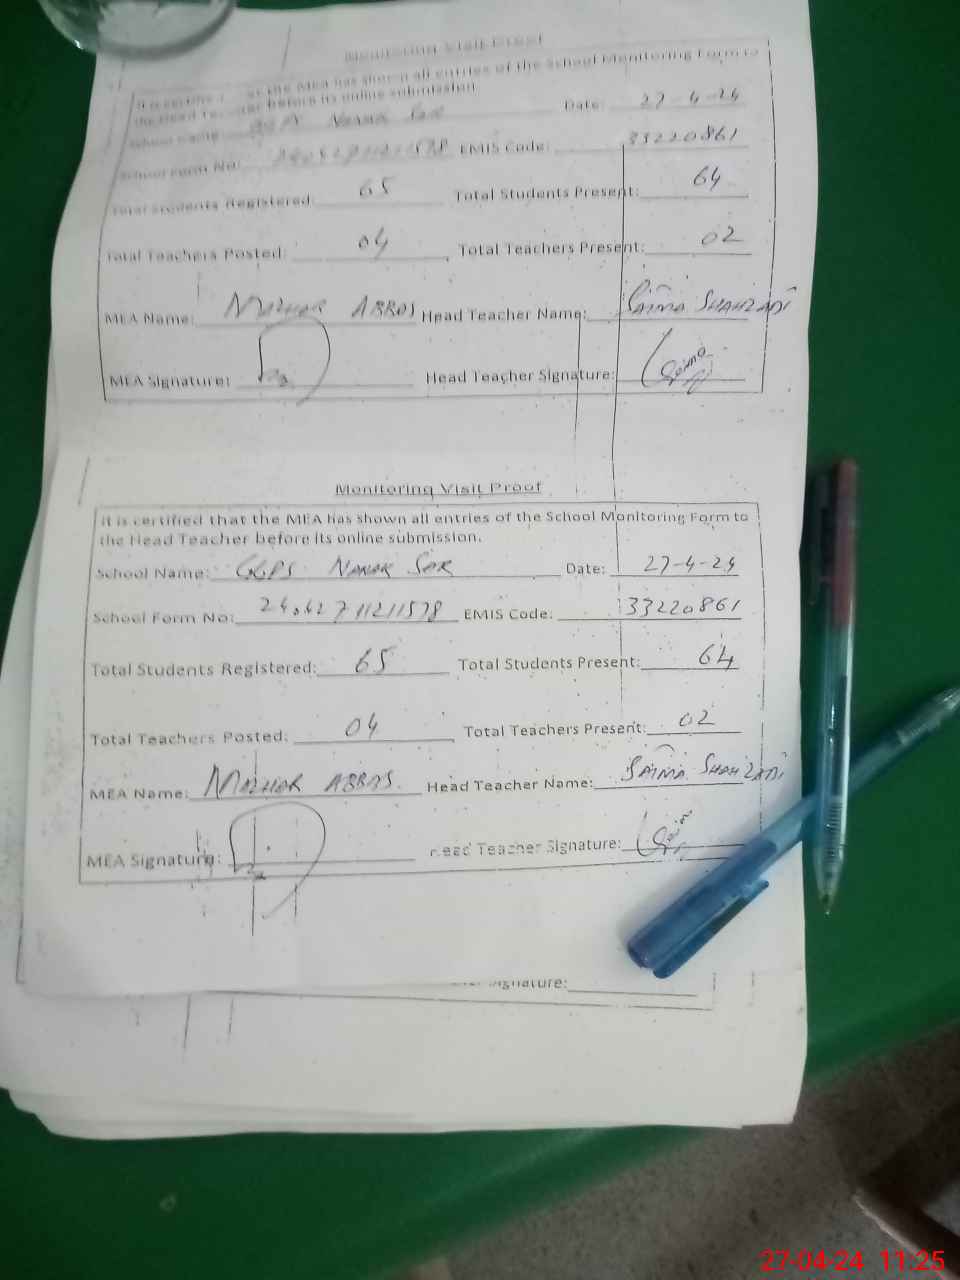 Monitoring Visit Proof
the MEA has shown all entries of the School Monitoring Form to
the Head before its online submission
School Name: Nanak Sar Date: 27-4-24
School Form No: EMIS Code: 33220861
Total Students Registered: 65 Total Students Present: 64
Total Teachers Posted: 04 Total Teachers Present: 02
MEA Name: Mazhar ABBAS Head Teacher Name: Saima SHAHZADI
MEA Signature: Head Teacher Signature: Saima
Monitoring Visit Proof
It is certified that the MEA has shown all entries of the School Monitoring Form to
the Head Teacher before its online submission.
School Name: GGPS NANAK SAR Date: 27-4-24
School Form No: EMIS Code: 33220861
Total Students Registered: 65 Total Students Present: 64
Total Teachers Posted: 04 Total Teachers Present: 02
MEA Name: MAZHAR ABBAS. Head Teacher Name: SAIMA SHAHZADI
MEA Signature: Head Teacher Signature: Saima
Signature:
27-04-24 11:25